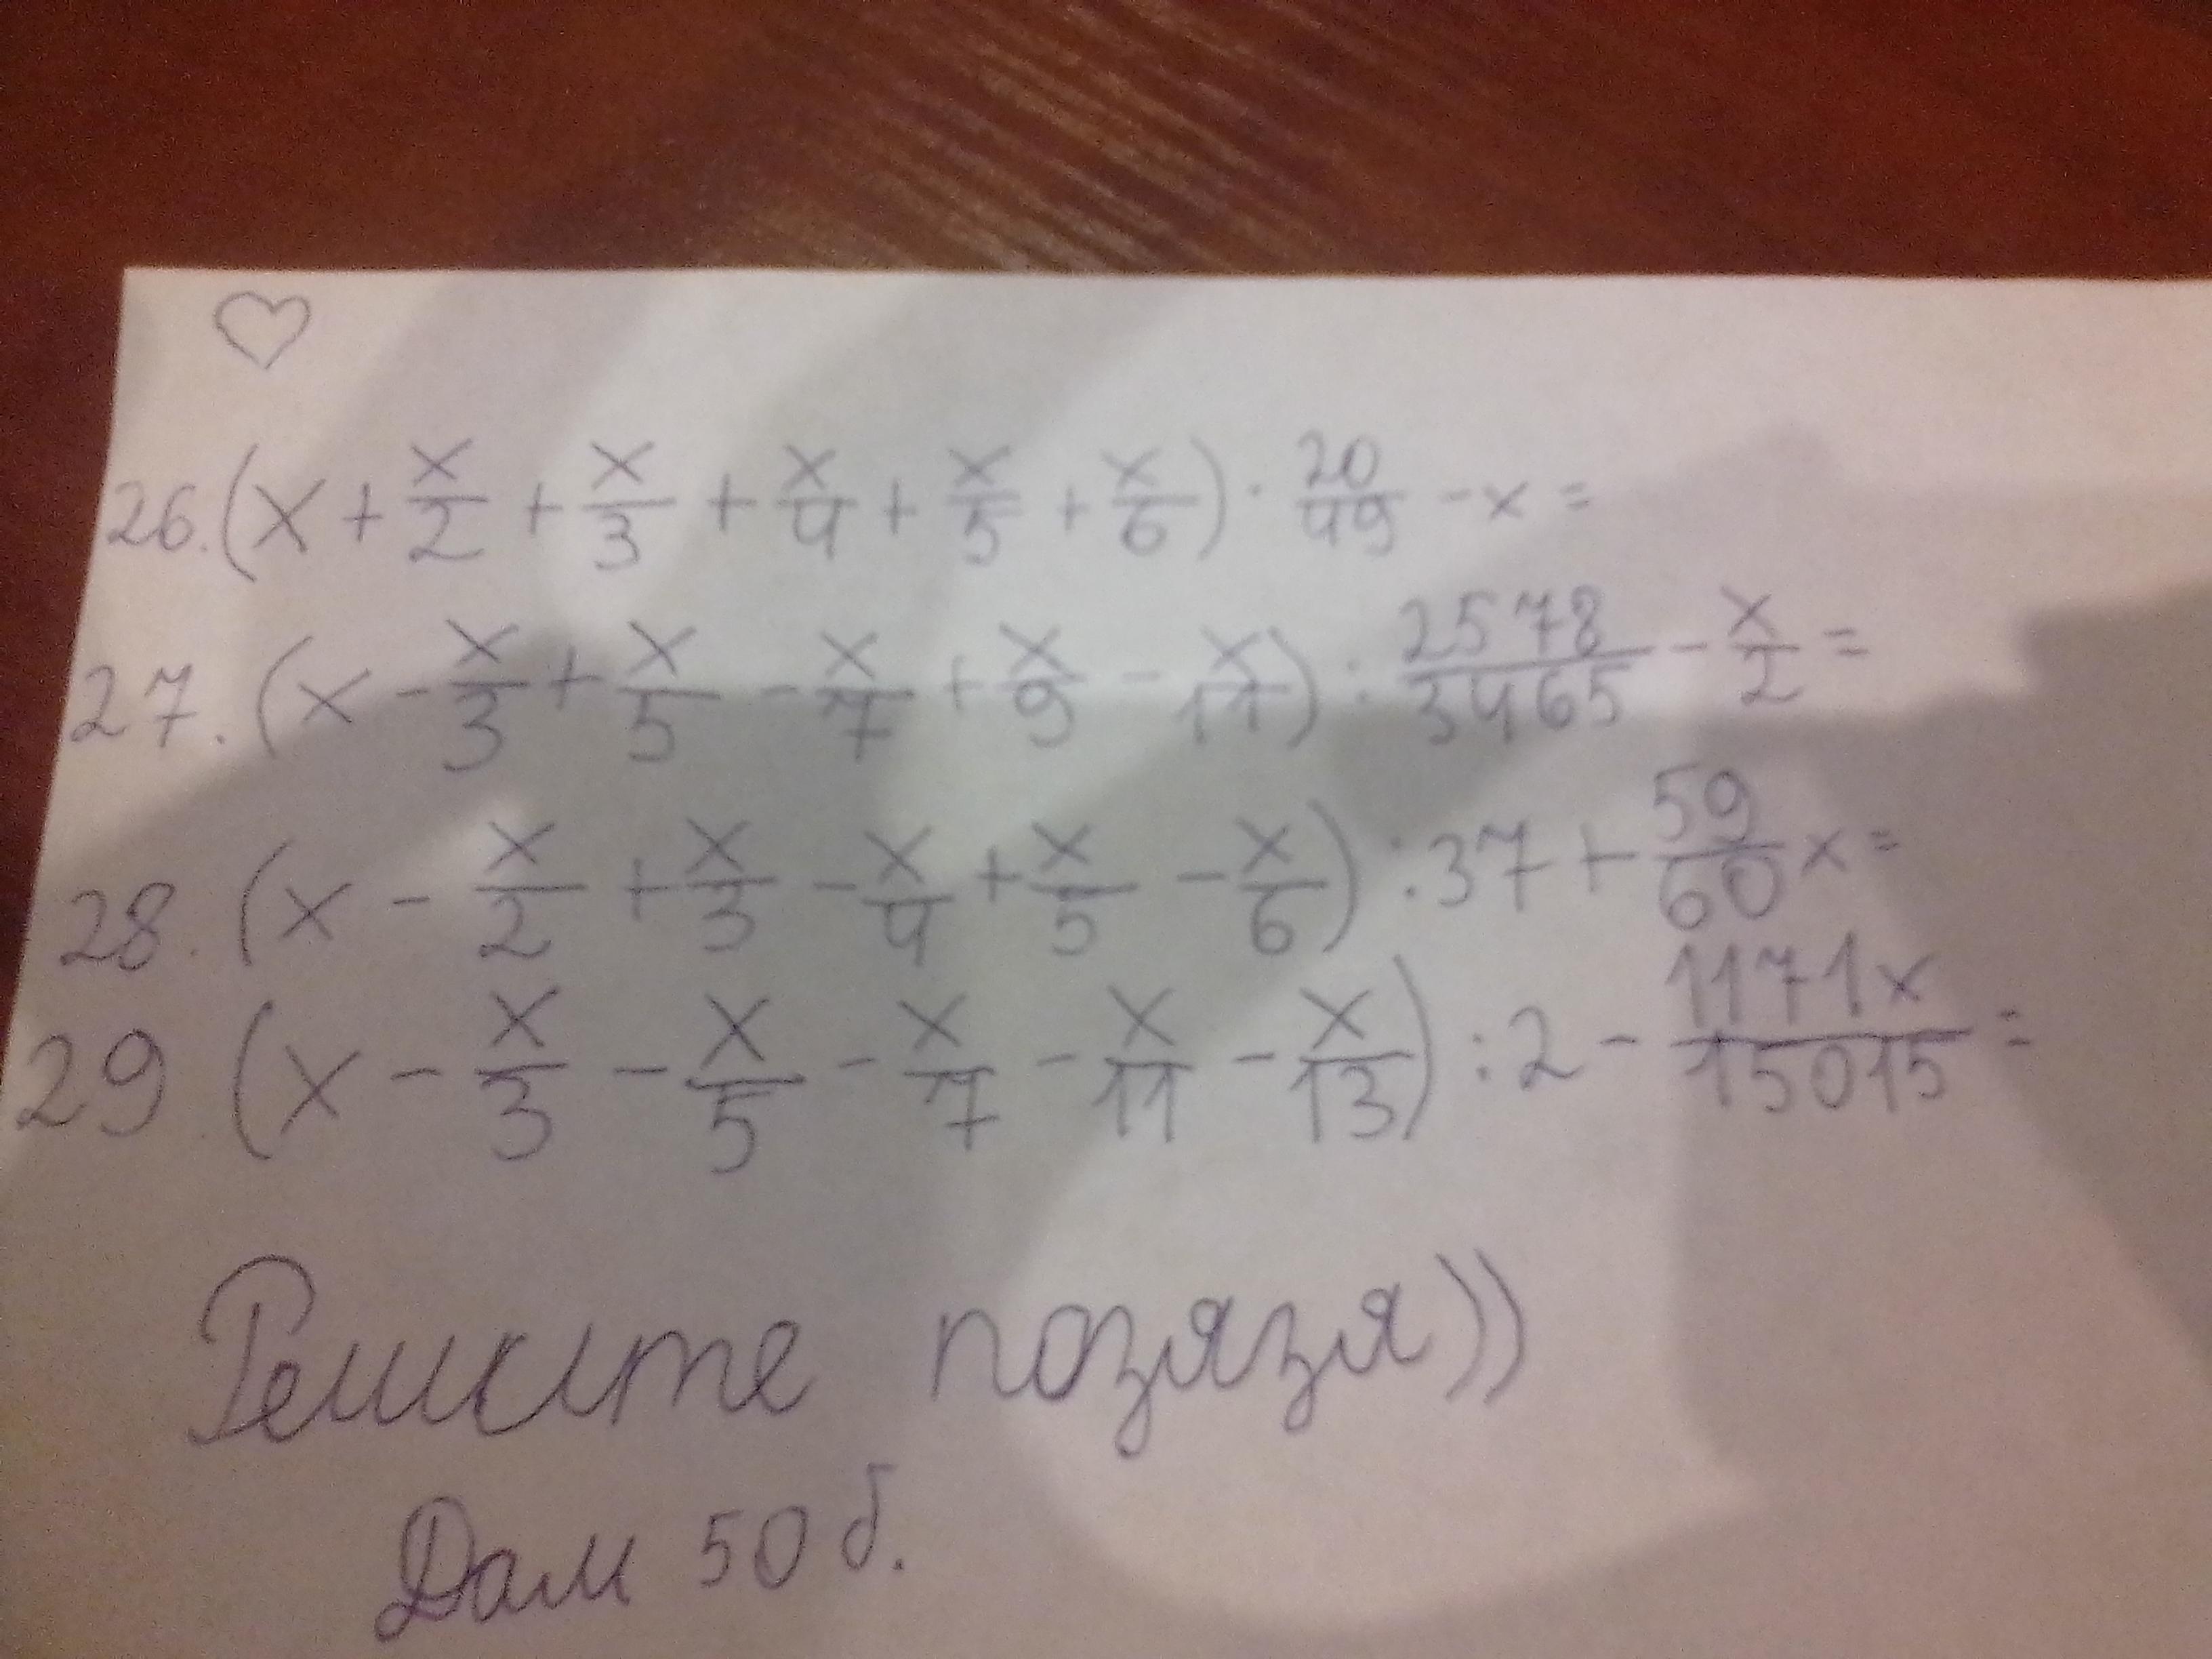 26.(x + x/2 + x/3 + x/4 + x/5 + x/6) · 20/49 - x =
27. (x - x/3 + x/5 - x/7 + x/9 - x/11) : 2578/3465 - x/2 =
28. (x - x/2 + x/3 - x/4 + x/5 - x/6) : 37 + 59/60 x =
29. (x - x/3 - x/5 - x/7 - x/11 - x/13) : 2 - 1171x/15015 =
Решите позязя))
Дам 50 б.